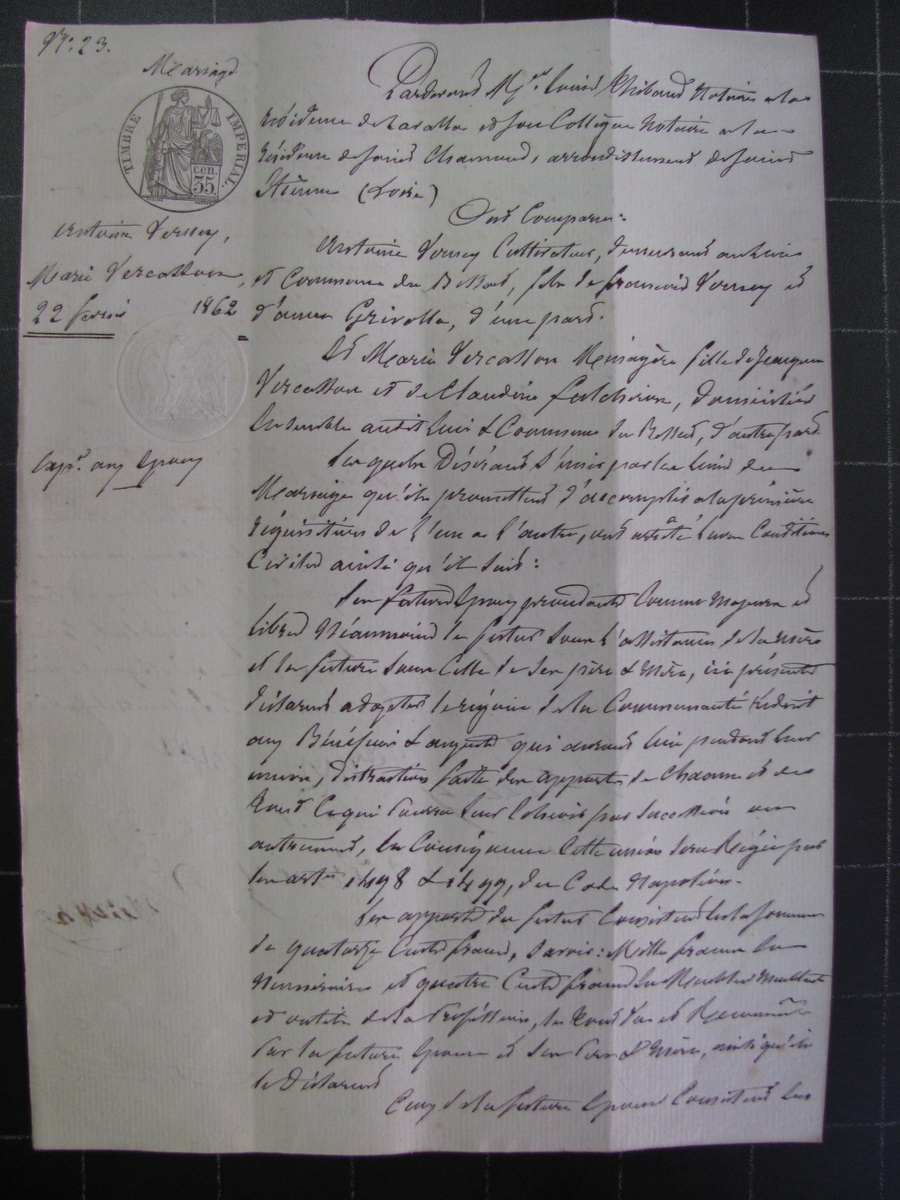 N°. 23.
Mariage
TIMBRE IMPERIAL
cen.
35
Antoine Verney,
Marie Vercasson,
22 1862
Expn. aux Epoux
Pardevant Me Louis Thibaud Notaire a la
résidence de et son Collègue Notaire a la
résidence de Saint Chamond, arrondissement de Saint
Etienne (Loire)
Ont Comparu:
Antoine Verney Cultivateur, demeurant au lieu
et Commune du fils de François Verney et
d'anne Grivolla, d'une part.
Et Marie Vercasson Ménagère fille de Jacques
Vercasson et de Claudine domiciliés
Ensemble audit Lieu & Commune du d'autre part
Lesquels Désirant s'unir par les liens du
Mariage qu'ils promettent d'accomplir a la première
réquisition de l'un a l'autre, ont arrêté leurs Conditions
Civiles ainsi qu'il suit:
Les futurs Epoux procédants Comme Majeurs et
libres Néanmoins le futur sous l'assistance de sa Mère
et la future sous Celle de ses père & Mère, ici présents
déclarent adopter le régime de la Communauté réduit
aux Bénéfices & acquets qui auront lieu pendant leur
union, distraction faite des apports de Chacun et de
tout Ce qui pourra leur Echoir par succession ou
autrement, En Conséquence Cette union sera Régie par
les arts 1498 & 1499, du Code Napoléon.
Les apports du futur Consistent En la somme
de quatorze Cents francs, savoir: Mille francs En
Numéraire et quatre Cents francs En Meubles
et outils de sa Profession, le tout vu et Reconnu
par la future Epouse et ses Père & Mère, ainsi qu'ils
le Déclarent
Ceux de la future Epouse Consistent En